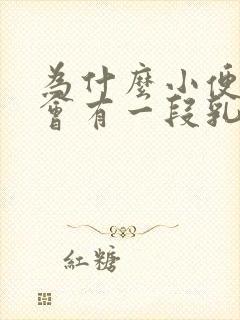 為什麼小便
會有一段乳
紅糖